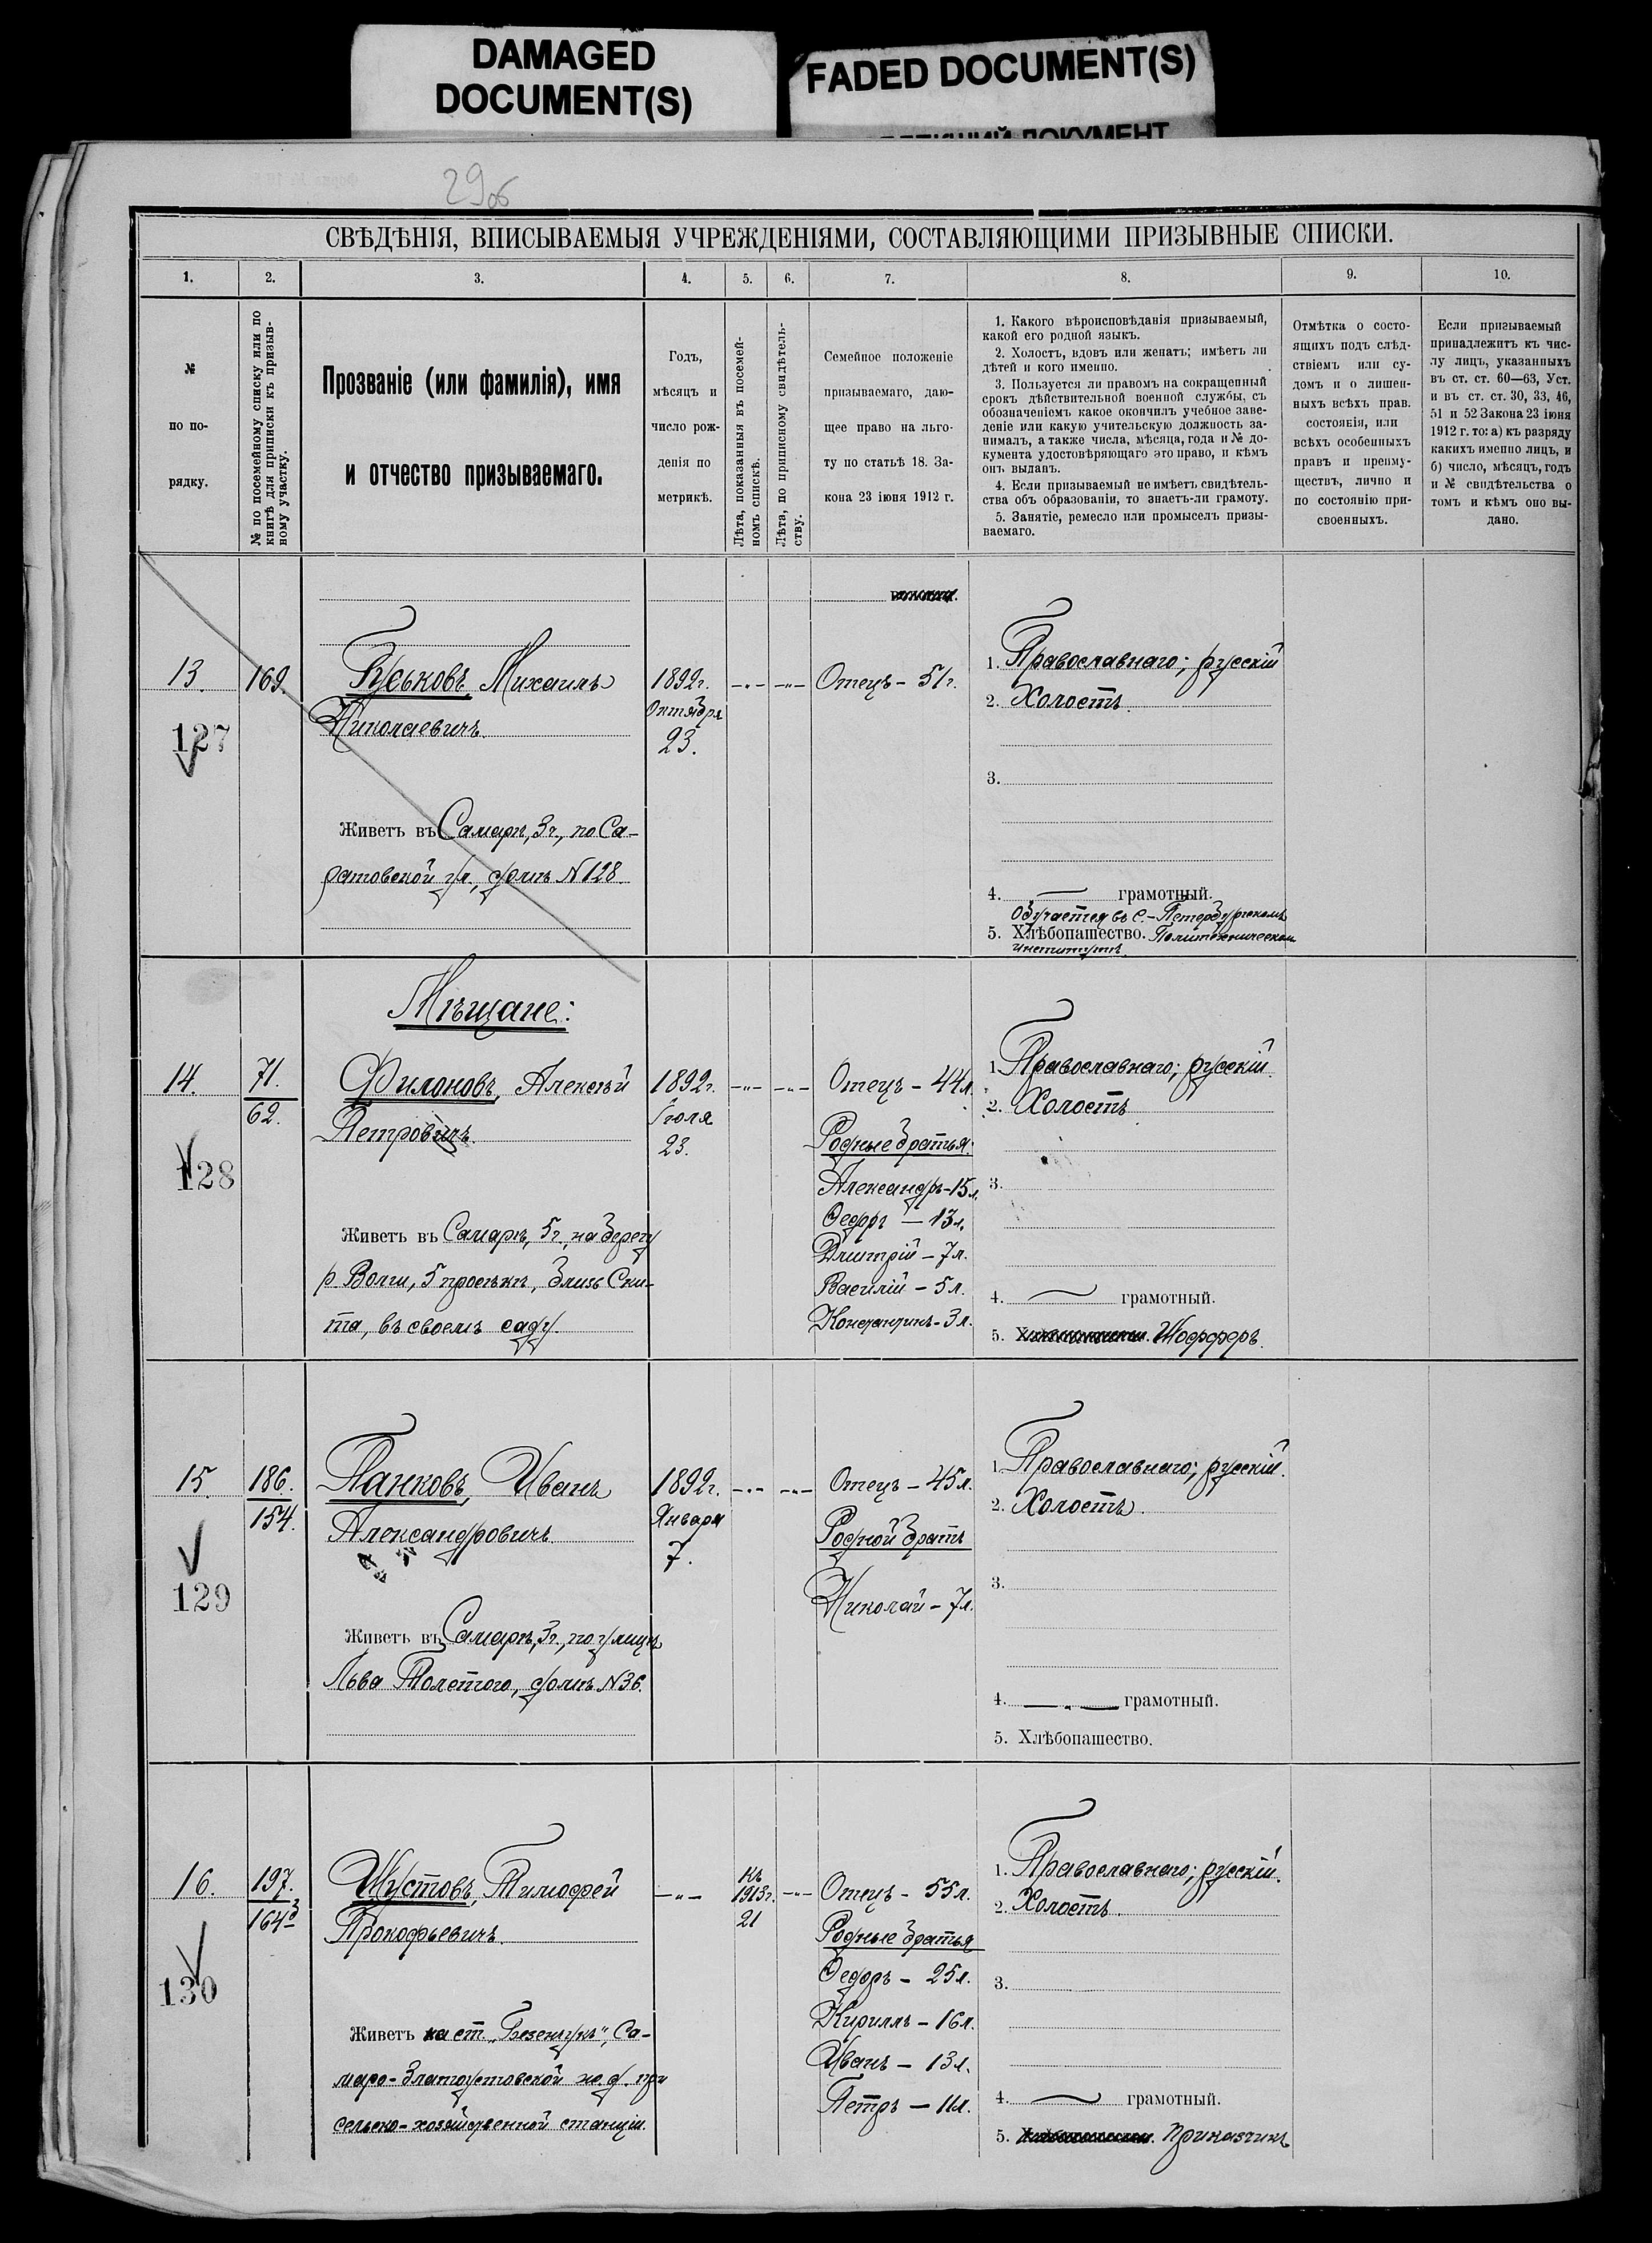 DAMAGED
DOCUMENT(S)
FADED DOCUMENT(S)
29об
СВѢДѢНІЯ, ВПИСЫВАЕМЫЯ УЧРЕЖДЕНІЯМИ, СОСТАВЛЯЮЩИМИ ПРИЗЫВНЫЕ СПИСКИ.
1. 2. 3. 4. 5. 6. 7. 8. 9. 10.
№
по по-
рядку.
№ по посемейному списку или по
книгѣ для приписки къ призыв-
ному участку.
Прозваніе (или фамилія), имя
и отчество призываемаго.
Годъ,
мѣсяцъ и
число рож-
денія по
метрикѣ.
Лѣта, показанныя въ посемей-
номъ спискѣ.
Лѣта, по приписному свидѣтель-
ству.
Семейное положеніе
призываемаго, даю-
щее право на льго-
ту по статьѣ 18. За-
кона 23 іюня 1912 г.
1. Какого вѣроисповѣданія призываемый,
какой его родной языкъ.
2. Холостъ, вдовъ или женатъ; имѣетъ ли
дѣтей и кого именно.
3. Пользуется ли правомъ на сокращенный
срокъ дѣйствительной военной службы, съ
обозначеніемъ какое окончилъ учебное заве-
деніе или какую учительскую должность за-
нималъ, а также числа, мѣсяца, года и № до-
кумента удостовѣряющаго это право, и кѣмъ
онъ выданъ.
4. Если призываемый не имѣетъ свидѣтель-
ства объ образованіи, то знаетъ-ли грамоту.
5. Занятіе, ремесло или промыселъ призы-
ваемаго.
Отмѣтка о состо-
ящихъ подъ слѣд-
ствіемъ или су-
домъ и о лишен-
ныхъ всѣхъ прав.
состоянія, или
всѣхъ особенныхъ
правъ и преиму-
ществъ, лично и
по состоянію при-
своенныхъ.
Если призываемый
принадлежитъ къ чис-
лу лицъ, указанныхъ
въ ст. ст. 60—63, Уст.
и въ ст. ст. 30, 33, 46,
51 и 52 Закона 23 іюня
1912 г. то: а) къ разряду
какихъ именно лицъ, и
б) число, мѣсяцъ, годъ
и № свидѣтельства о
томъ и кѣмъ оно вы-
дано.
13.
127
169.
Гуськовъ, Михаилъ
Николаевичъ.
Живетъ въ Самарѣ, 3ч., по Са-
ратовской ул., домъ № 128.
1892г.
Октября
23.
-„-
-„-
Отецъ - 51г.
1. Православнаго; русскій
2. Холостъ.
3.
4. грамотный.
Обучается въ С.-Петербургскомъ
5. Хлѣбопашество. Политехническом
институтѣ.
Мѣщане:
14.
128
71.
62.
Филоновъ, Алексѣй
Петровичъ.
Живетъ въ Самарѣ, 5ч., на берегу
р. Волги, 5 просѣкѣ, близь Ски-
та, въ своемъ саду.
1892г.
Іюля
23.
-„-
-„-
Отецъ - 44л.
Родные братья:
Александръ - 15л.
Ѳедоръ - 13л.
Дмитрій - 7л.
Василій - 5л.
Константинъ - 3л.
1. Православнаго; русскій.
2. Холостъ
3.
4. грамотный.
5. Шофферъ.
15.
129
186.
154.
Панковъ, Иванъ
Александровичъ.
Живетъ въ Самарѣ, 3ч., по улицѣ
Льва Толстого, домъ № 36.
1892г.
Января
7.
-„-
-„-
Отецъ - 45л.
Родной братъ
Николай - 7л.
1. Православнаго; русскій.
2. Холостъ.
3.
4. грамотный.
5. Хлѣбопашество.
16.
130
197.
164
Шустовъ, Тимофей
Прокофьевичъ.
Живетъ на ст. „Безенчукъ", Са-
маро-Златоустовской ж. д. при
сельско-хозяйственной станціи.
-„-
къ
1913г.
21
-„-
Отецъ - 55л.
Родные братья
Ѳедоръ - 25л.
Кириллъ - 16л.
Иванъ - 13л.
Петръ - 11л.
1. Православнаго; русскій.
2. Холостъ.
3.
4. грамотный.
5. Приказчикъ